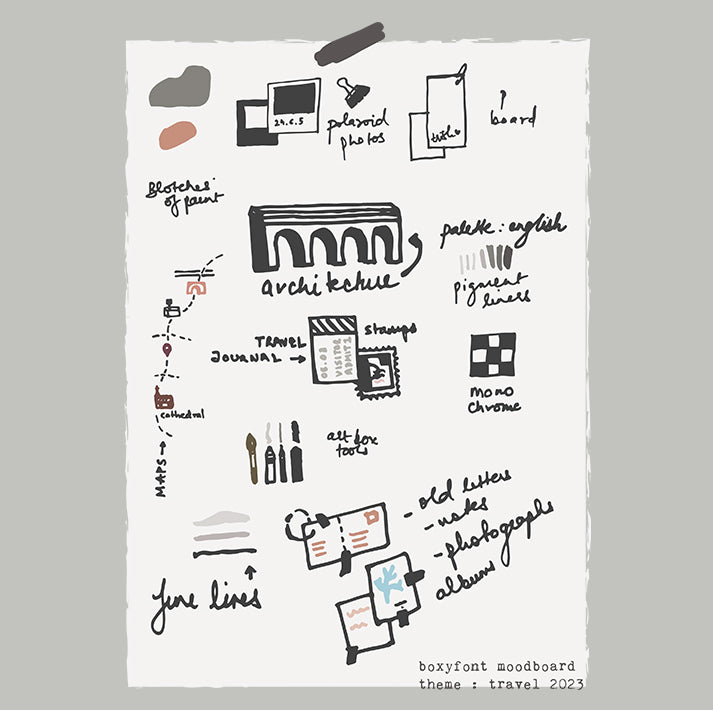 24.6.5
polaroid
photos
board
Blotches
of paint
architecture
palette : english
pigment
liners
TRAVEL
JOURNAL →
stamps
06.03
VISITOR
ADMIT 1
mono
chrome
cathedral
MAPS →
art box
tools
- old letters
- notes
- photographs
albums
fine lines
boxyfont moodboard
theme : travel 2023